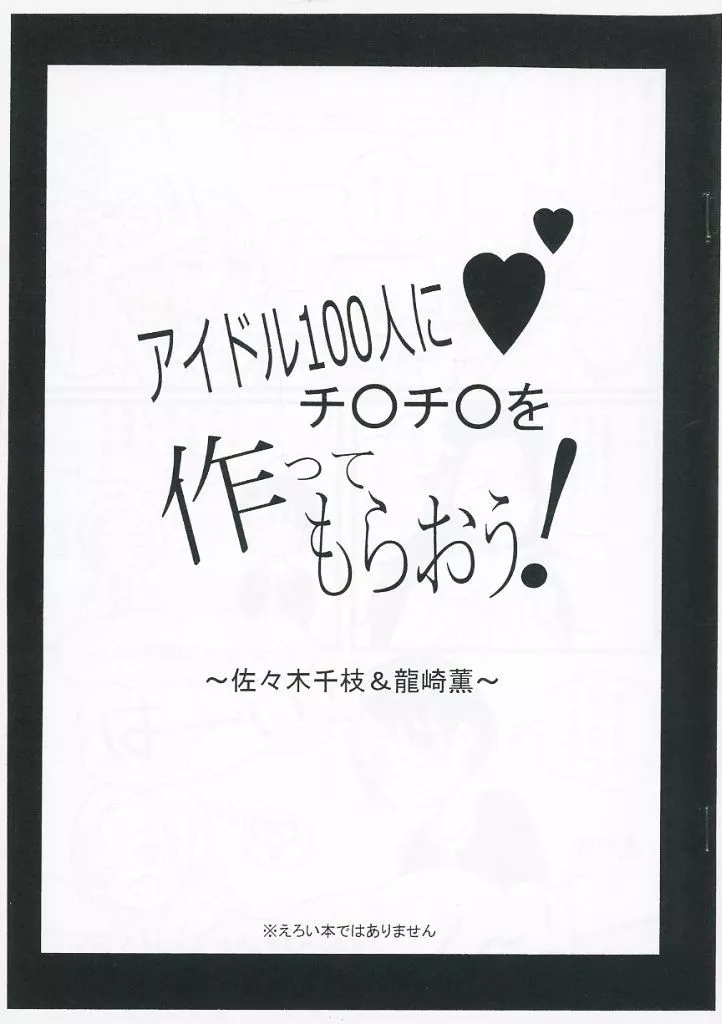 アイドル100人に
チ〇チ〇を
作って
もらおう!
～佐々木千枝＆龍崎薫～
※えろい本ではありません